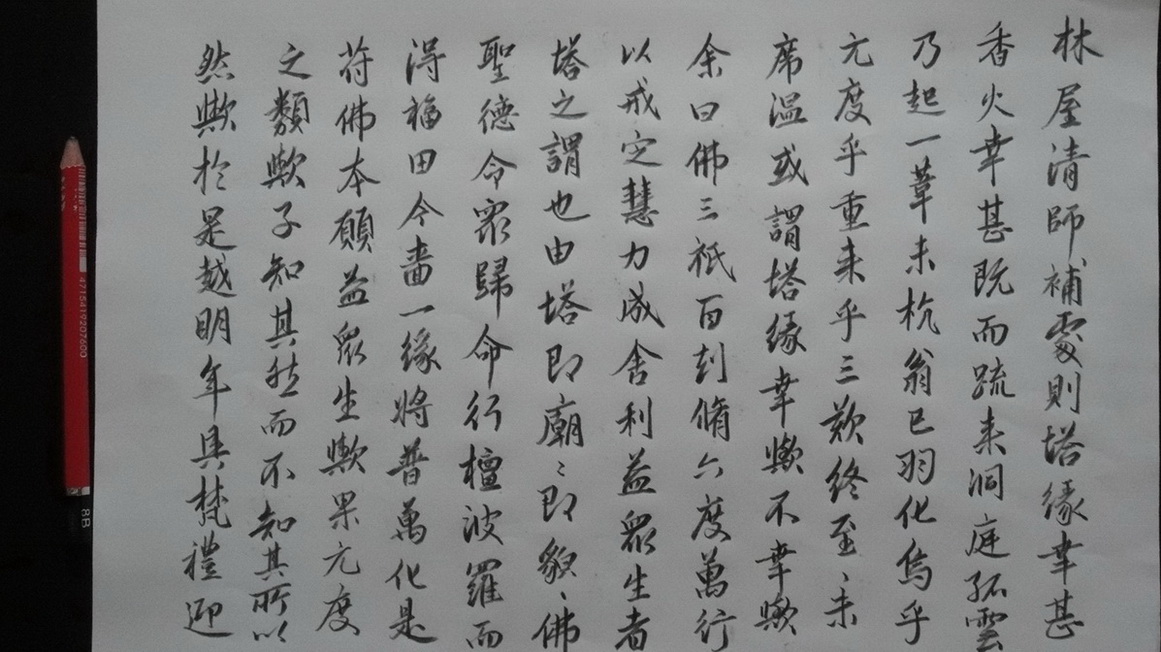 林屋清師補處則塔緣幸甚
香火幸甚既而疏来洞庭孤雲
乃起一葦未杭翁已羽化烏乎
元度乎重来乎三歎終至〻未
席温或謂塔緣幸歟不幸歟
余曰佛三祇百刦脩六度萬行
以戒定慧力成舍利益眾生者
塔之謂也由塔即廟〻即貌〻佛
聖德令眾歸命行檀波羅而
得福田今嗇一緣將普萬化是
符佛本願益眾生歟果元度
之類歟子知其然而不知其所以
然歟於是越明年具梵禮迎
4715419207600
8B